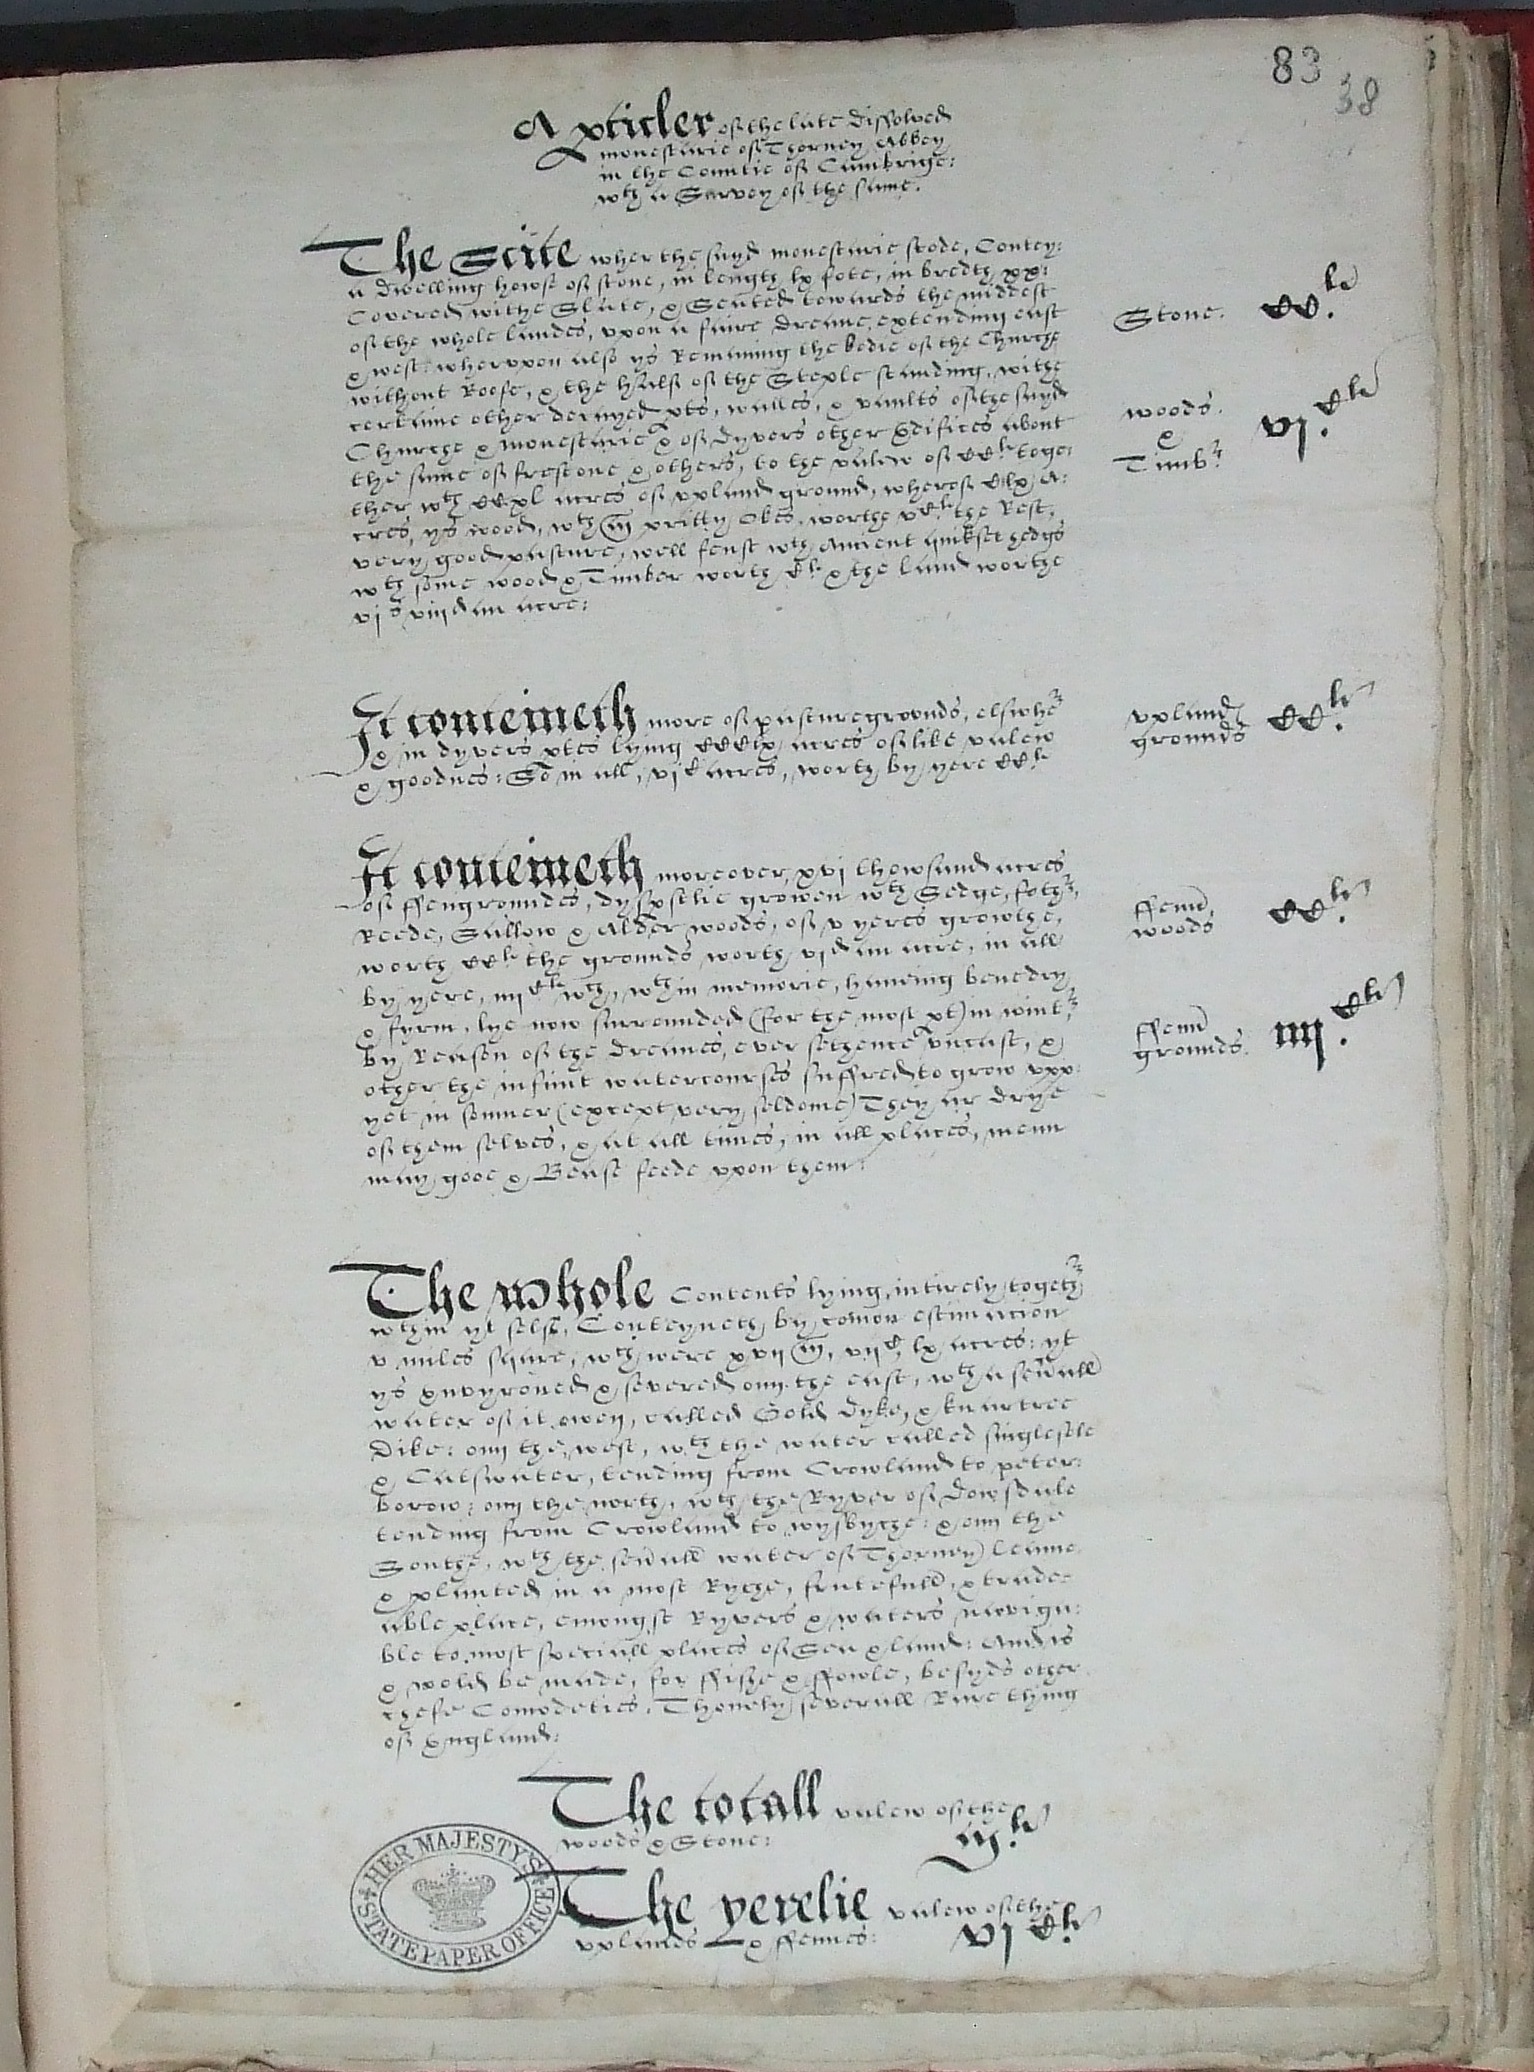 83
38
A pticler of the late dissolved
monesterie of Thorney Abbey
in the Countie of Cambrige:
wth a Survey of the same.
The Scite wher the sayd monesterie stode, Contey:
a dwelling howse of stone, in length lx fote, in bredth xx:
Covered withe Slate, & Seated towards the middest
of the whole landes, upon a faire dreane, extending east
& west: wherupon also ys Remaining the bodie of the Churche
without Roofe, & the halfe of the Steple standing, withe
certaine other decayed pts, walles, & vaults of the sayd
Churche & monesterie & of dyvers other Edifices about
the same of frestone & others, to the valew of CCli toge:
ther wth CCxl acres of upland ground, wherof Clx a:
cres, ys wood, wth m pritty Okes, worthe vCli the Rest,
very good pasture, well fenst wth Ancient quikset hedgs
wth some wood & Timber worth Cli & the land worthe
vjs viijd an acre:
Stone. CCli
woods.
&
Timbr
vjCli
It conteineth more of pasture grownds, elswher
& in dyvers ptes lying CCClx acres of like valew
& goodnes: So in all, vjC acres, worth by yere CCli
upland
grounds
CCli
It conteineth moreover, xvj thowsand acres
of ffengroundes, dyspselie growen wth Sedge, fothr,
Reede, Sallow & Alder woods, of v yeres growthe,
worth CCli the grounds worth vjd an acre, in all
by yere, iiijCli wch, wthin memorie, haueing bene dry
& fyrm, lye now surrounded (for the most pt) in wintr
by Reason of the dreanes, ever sethence uncast, &
other the infinit watercourses suffred to grow upp:
yet in somer (except very seldome) They ar drye
of them selves, & at all times, in all places, menn
may gooe & Beast feede upon them:
ffenn
woods
CCli
ffenn
grounds.
iiijCli
The whole Contents lying, intirely, togethr
wthin yt selfe, Conteyneth by comon estimacion
v miles square, wch were xvij m, vijC lx acres: yt
ys Envyroned & severed onn the east, wth a severall
water of it owen, called Gold Dyke, & knartree
Dike: onn the west, wth the water called singlesole
& Catswater, tending from Crowland to peter:
borow: onn the north, wth the Ryver of Dowsdale
tending from Crowland to wysbyche: & onn the
Southe, wth the severall water of Thorney leame
& planted in a most Ryche, frutefull, & trade:
able place, emongst Ryvers & waters naviga:
ble to most speciall places of Sea & land: And is
& wold be made, for ffishe & ffowle, besyds other
chefe Comodeties, Thonely severall Rare thing
of England:
The totall valew of the
woods & Stone: mli
The yerelie valew of the
uplands & ffennes: vjCli
HER MAJESTY'S
STATE PAPER OFFICE